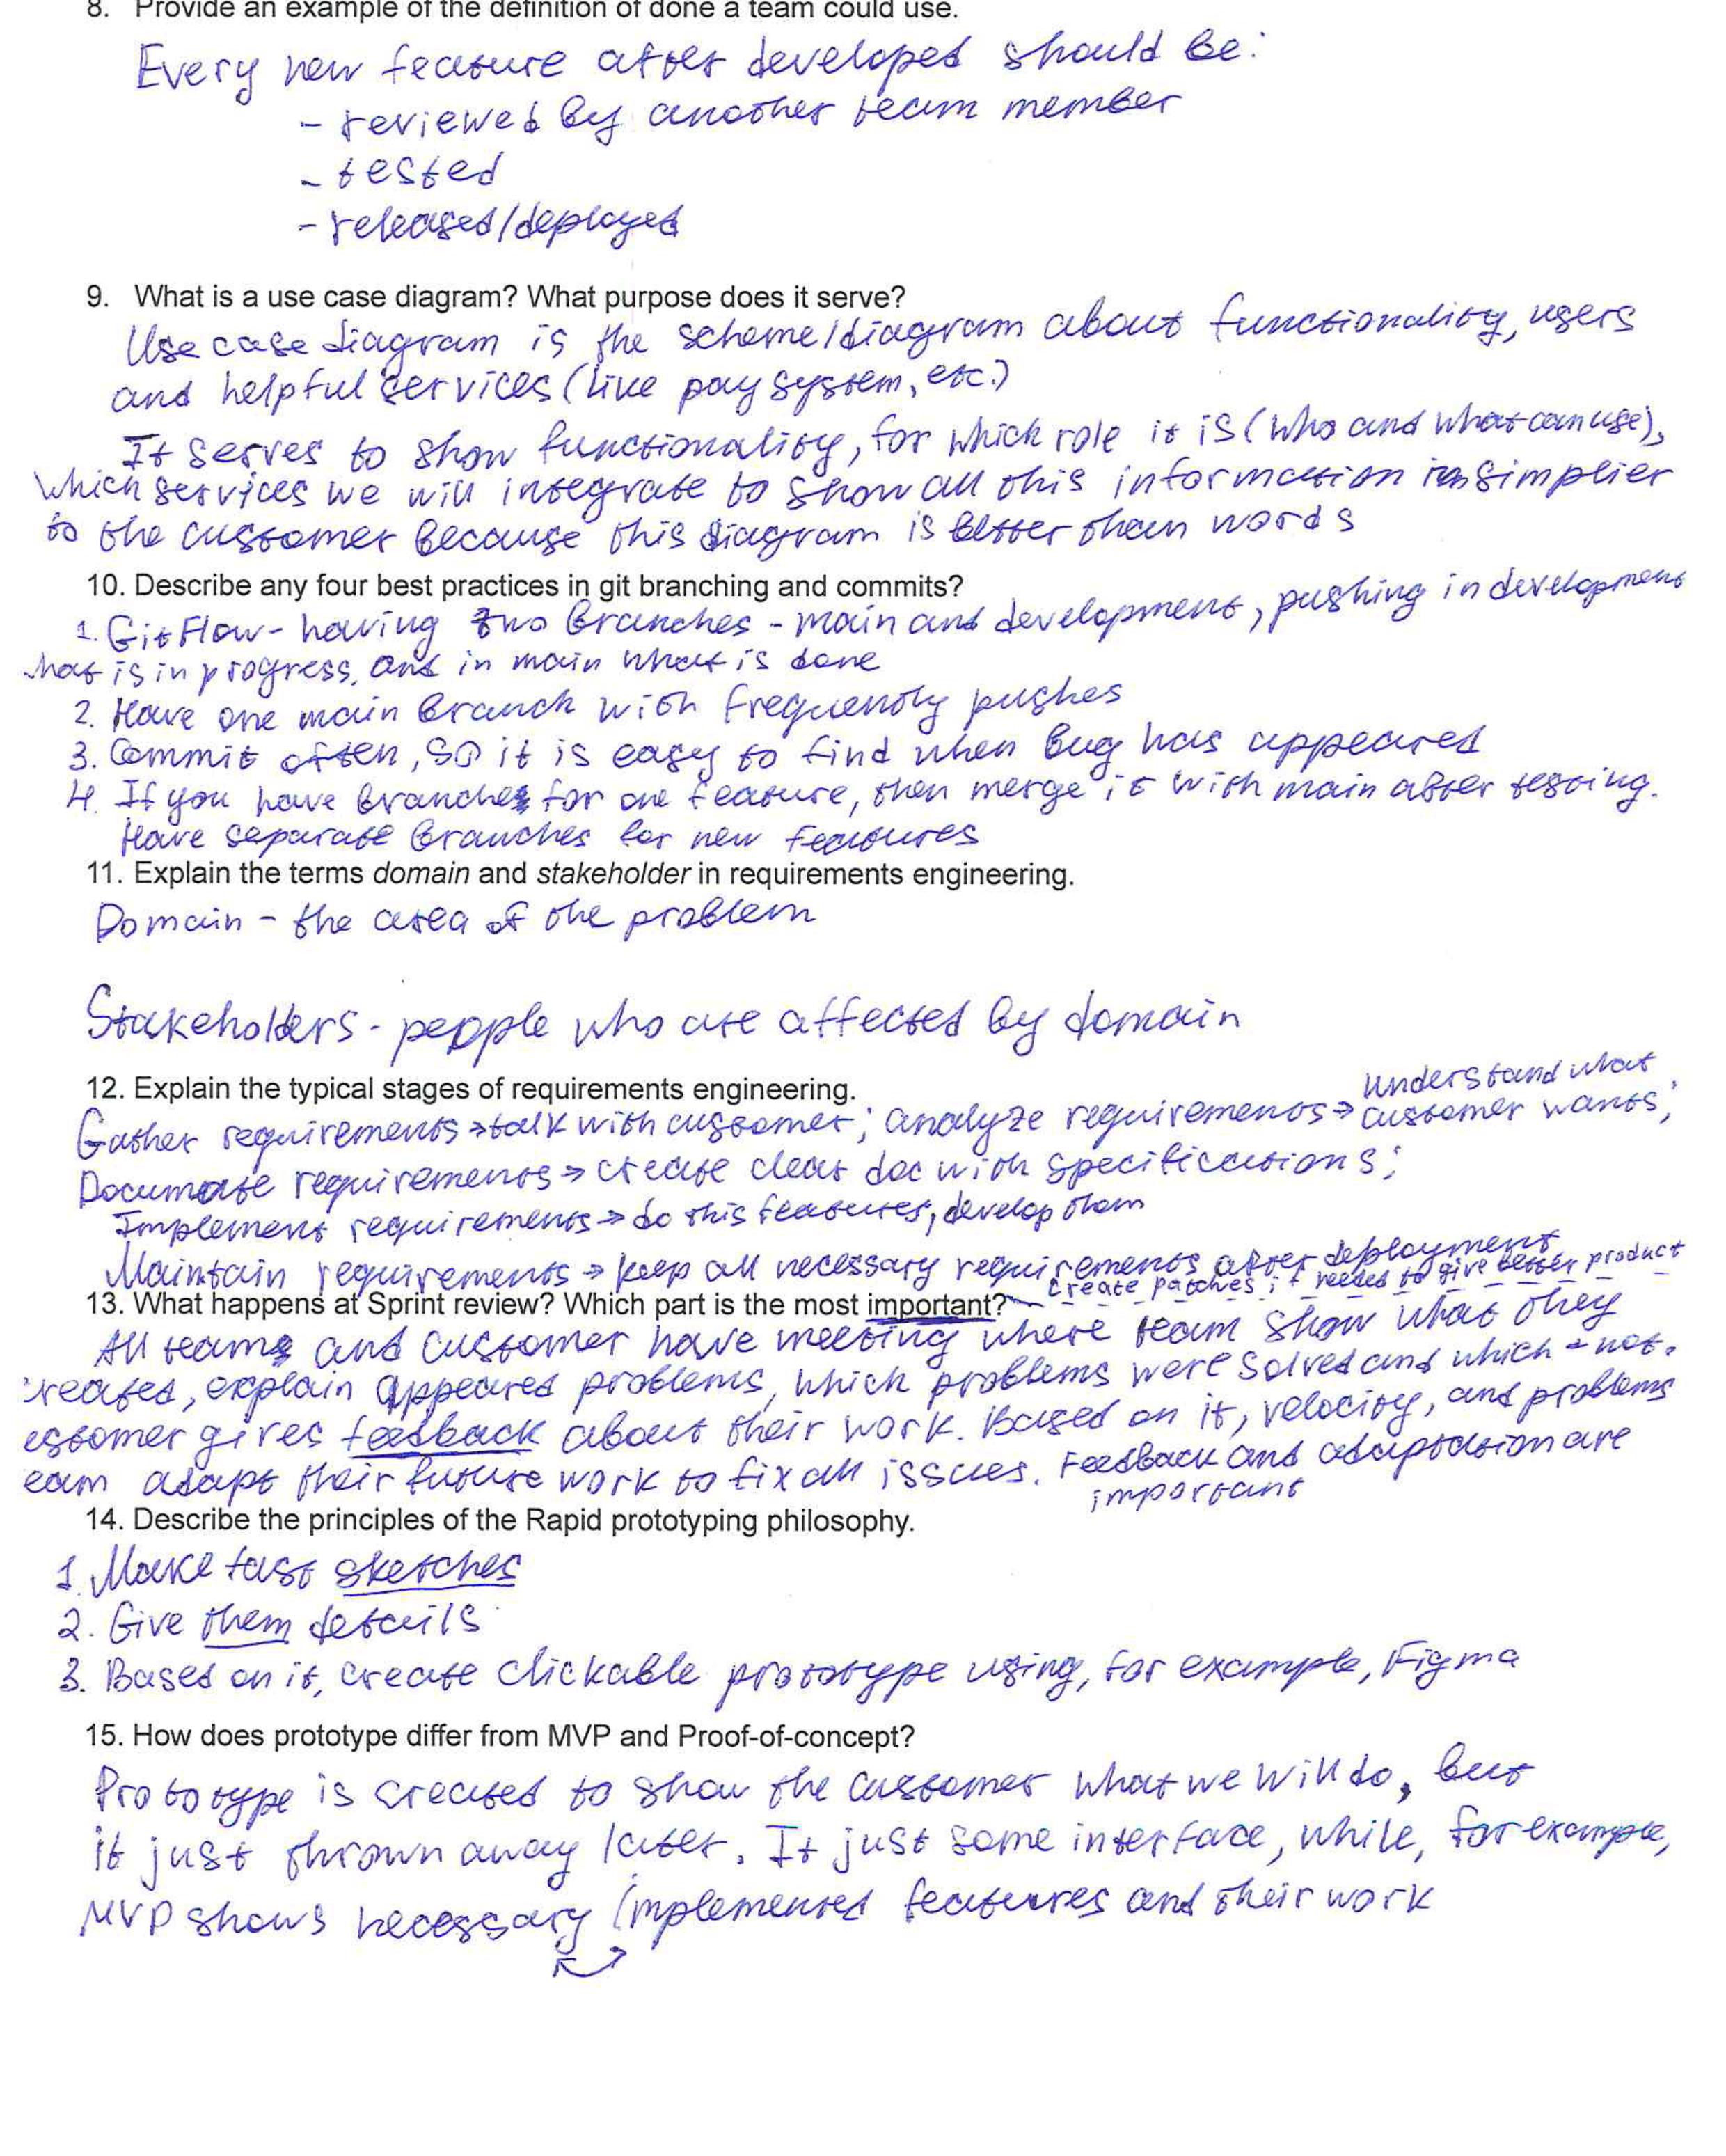 8. Provide an example of the definition of done a team could use.
Every new feature after developed should be:
- reviewed by another team member
- tested
- released/deployed
9. What is a use case diagram? What purpose does it serve?
Use case diagram is the scheme/diagram about functionality, users
and helpful services (like pay system, etc.)
It serves to show functionality, for which role it is (who and what can use),
which services we will integrate to show all this information in simplier
to the customer because this diagram is better than words
10. Describe any four best practices in git branching and commits?
1. GitFlow - having two branches - main and development, pushing in development
what is in progress, and in main what is done
2. Have one main branch with frequently pushes
3. Commit often, so it is easy to find when bug has appeared
4. If you have branches for one feature, then merge it with main after testing.
Have separate branches for new features
11. Explain the terms domain and stakeholder in requirements engineering.
Domain - the area of the problem
Stakeholders - people who are affected by domain
12. Explain the typical stages of requirements engineering.
Gather requirements → talk with customer; analyze requirements → understand what customer wants;
Documente requirements → create clear doc with specifications;
Implement requirements → do this features, develop them
Maintain requirements → keep all necessary requirements after deployment
create patches if needed to give better product
13. What happens at Sprint review? Which part is the most important?
All teams and customer have meeting where team show what they
created, explain appeared problems, which problems were solved and which - not.
customer gives feedback about their work. Based on it, velocity, and problems
team adapt their future work to fix all issues. Feedback and adaptation are
important
14. Describe the principles of the Rapid prototyping philosophy.
1. Make fast sketches
2. Give them details
3. Based on it, create clickable prototype using, for example, Figma
15. How does prototype differ from MVP and Proof-of-concept?
Prototype is created to show the customer what we will do, but
it just thrown away later. It just some interface, while, for example,
MVP shows necessary implemented features and their work